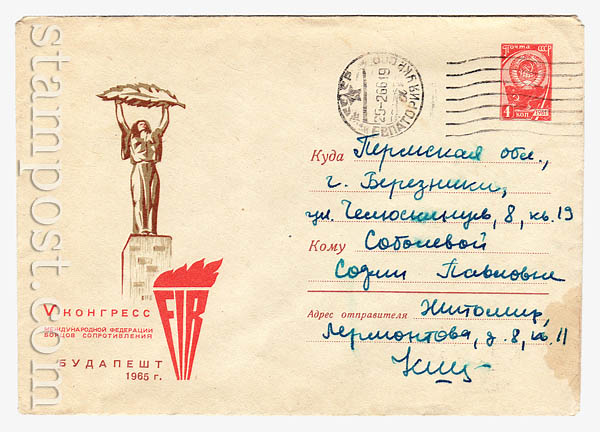 stampost.com
Почта СССР
4 коп
25-2 66 19
ЕВПАТОРИЯ
Куда Пермская обл.,
г. Березники,
ул. Челюскинцев, 8, кв. 19
Кому Соболевой
Софии Павловне
Адрес отправителя Житомир,
Лермонтова, д. 8, кв. 11
V КОНГРЕСС
МЕЖДУНАРОДНОЙ ФЕДЕРАЦИИ
БОРЦОВ СОПРОТИВЛЕНИЯ
FIR
БУДАПЕШТ
1965 г.